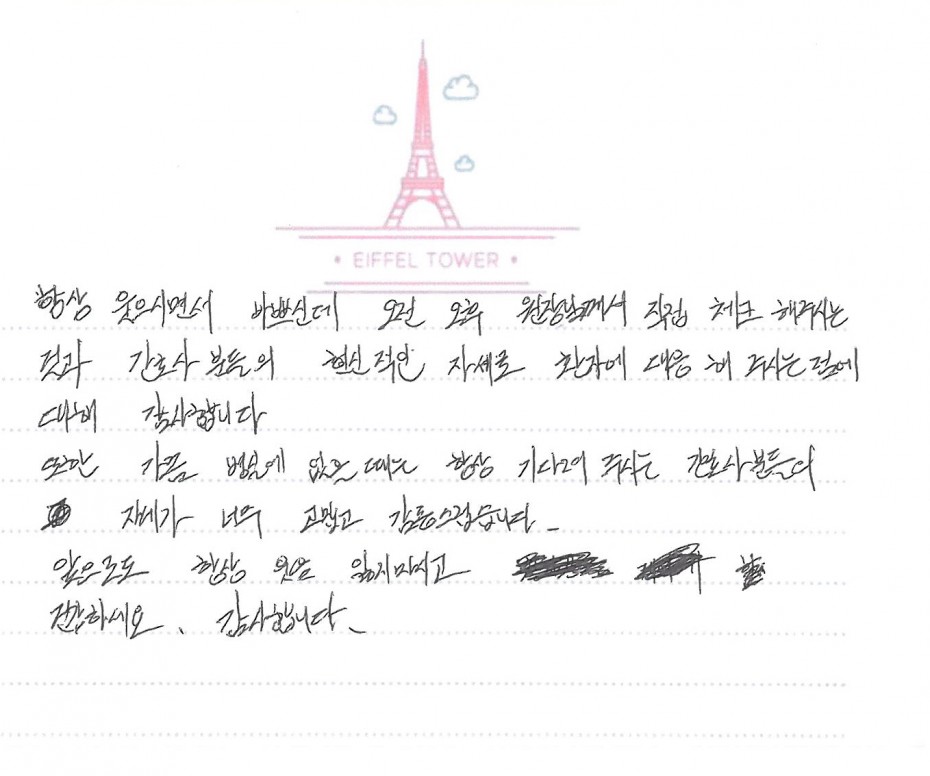 • EIFFEL TOWER •
항상 웃으시면서 바쁘신데 오전 오후 원장님께서 직접 체크 해주시는
것과 간호사 분들의 헌신적인 자세로 환자에 대응 해 주시는 점에
대해 감사합니다
또한 가끔 병실에 없을 때는 항상 기다려 주시는 간호사분들의
자세가 너무 고맙고 감동스럽습니다.
앞으로도 항상 웃음 잃지마시고
건강하세요. 감사합니다.